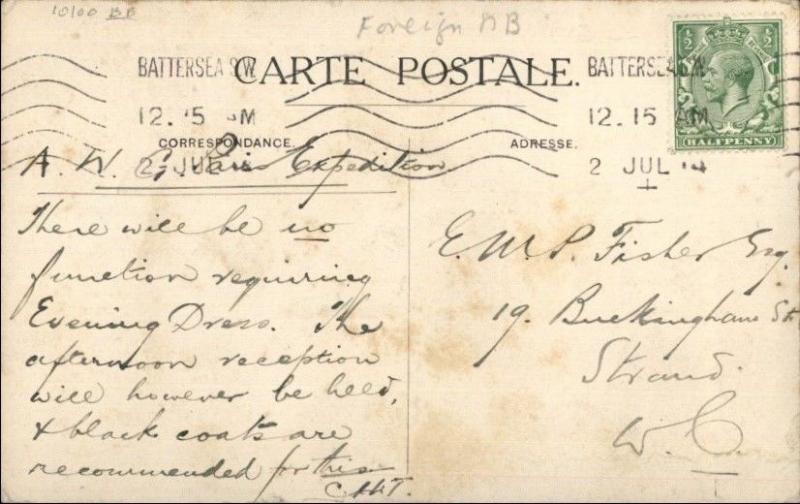 10100 BB
Foreign BB
BATTERSEA S.W.
CARTE POSTALE.
BATTERSEA S.W.
12. 15 AM
12. 15 AM
CORRESPONDANCE.
ADRESSE.
2 JUL 14
2 JUL 14
HALFPENNY
A. W. G. Paris Expedition
There will be no
function requiring
Evening Dress. The
afternoon reception
will however be held,
& black coats are
recommended for this
C.H.T.
E. W. P. Fisher Esq.
19. Buckingham St.
Strand.
W.C.